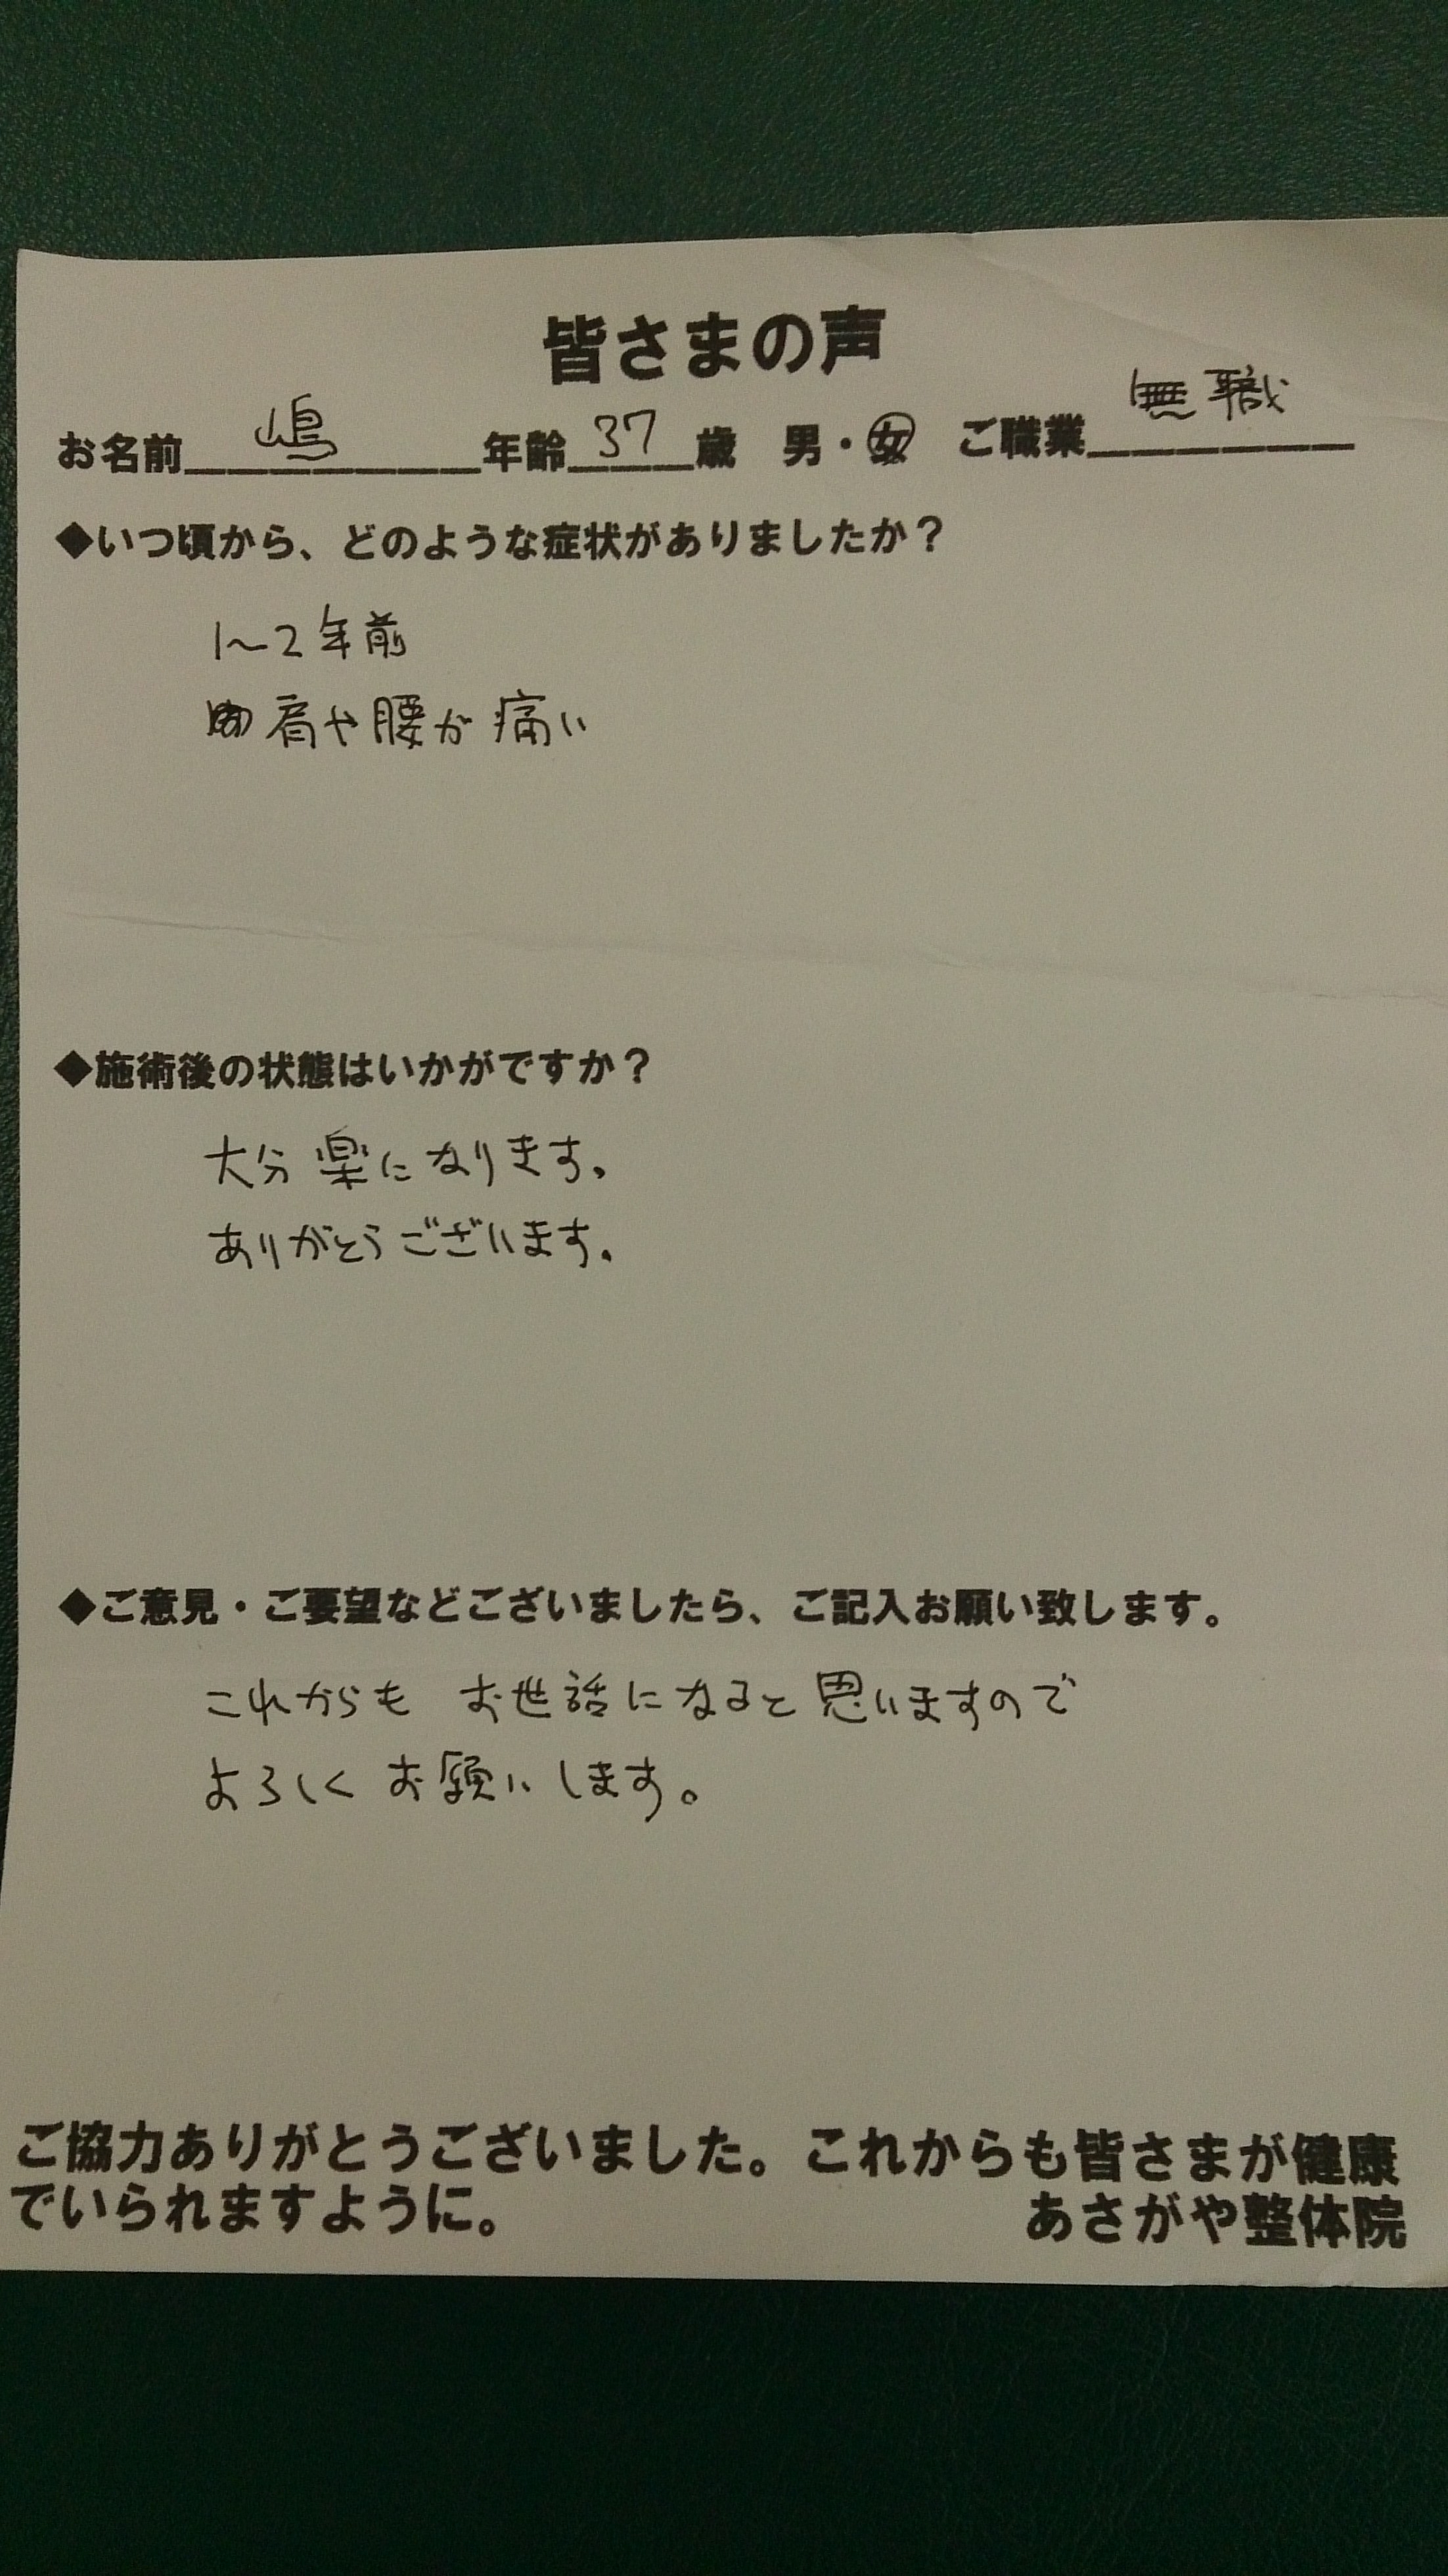 皆さまの声
お名前 嶋 年齢 37 歳 男・女 ご職業 無職
◆いつ頃から、どのような症状がありましたか？
1～2年前
肩や腰が痛い
◆施術後の状態はいかがですか？
大分楽になります。
ありがとうございます。
◆ご意見・ご要望などございましたら、ご記入お願い致します。
これからも お世話になると思いますので
よろしくお願いします。
ご協力ありがとうございました。これからも皆さまが健康
でいられますように。 あさがや整体院